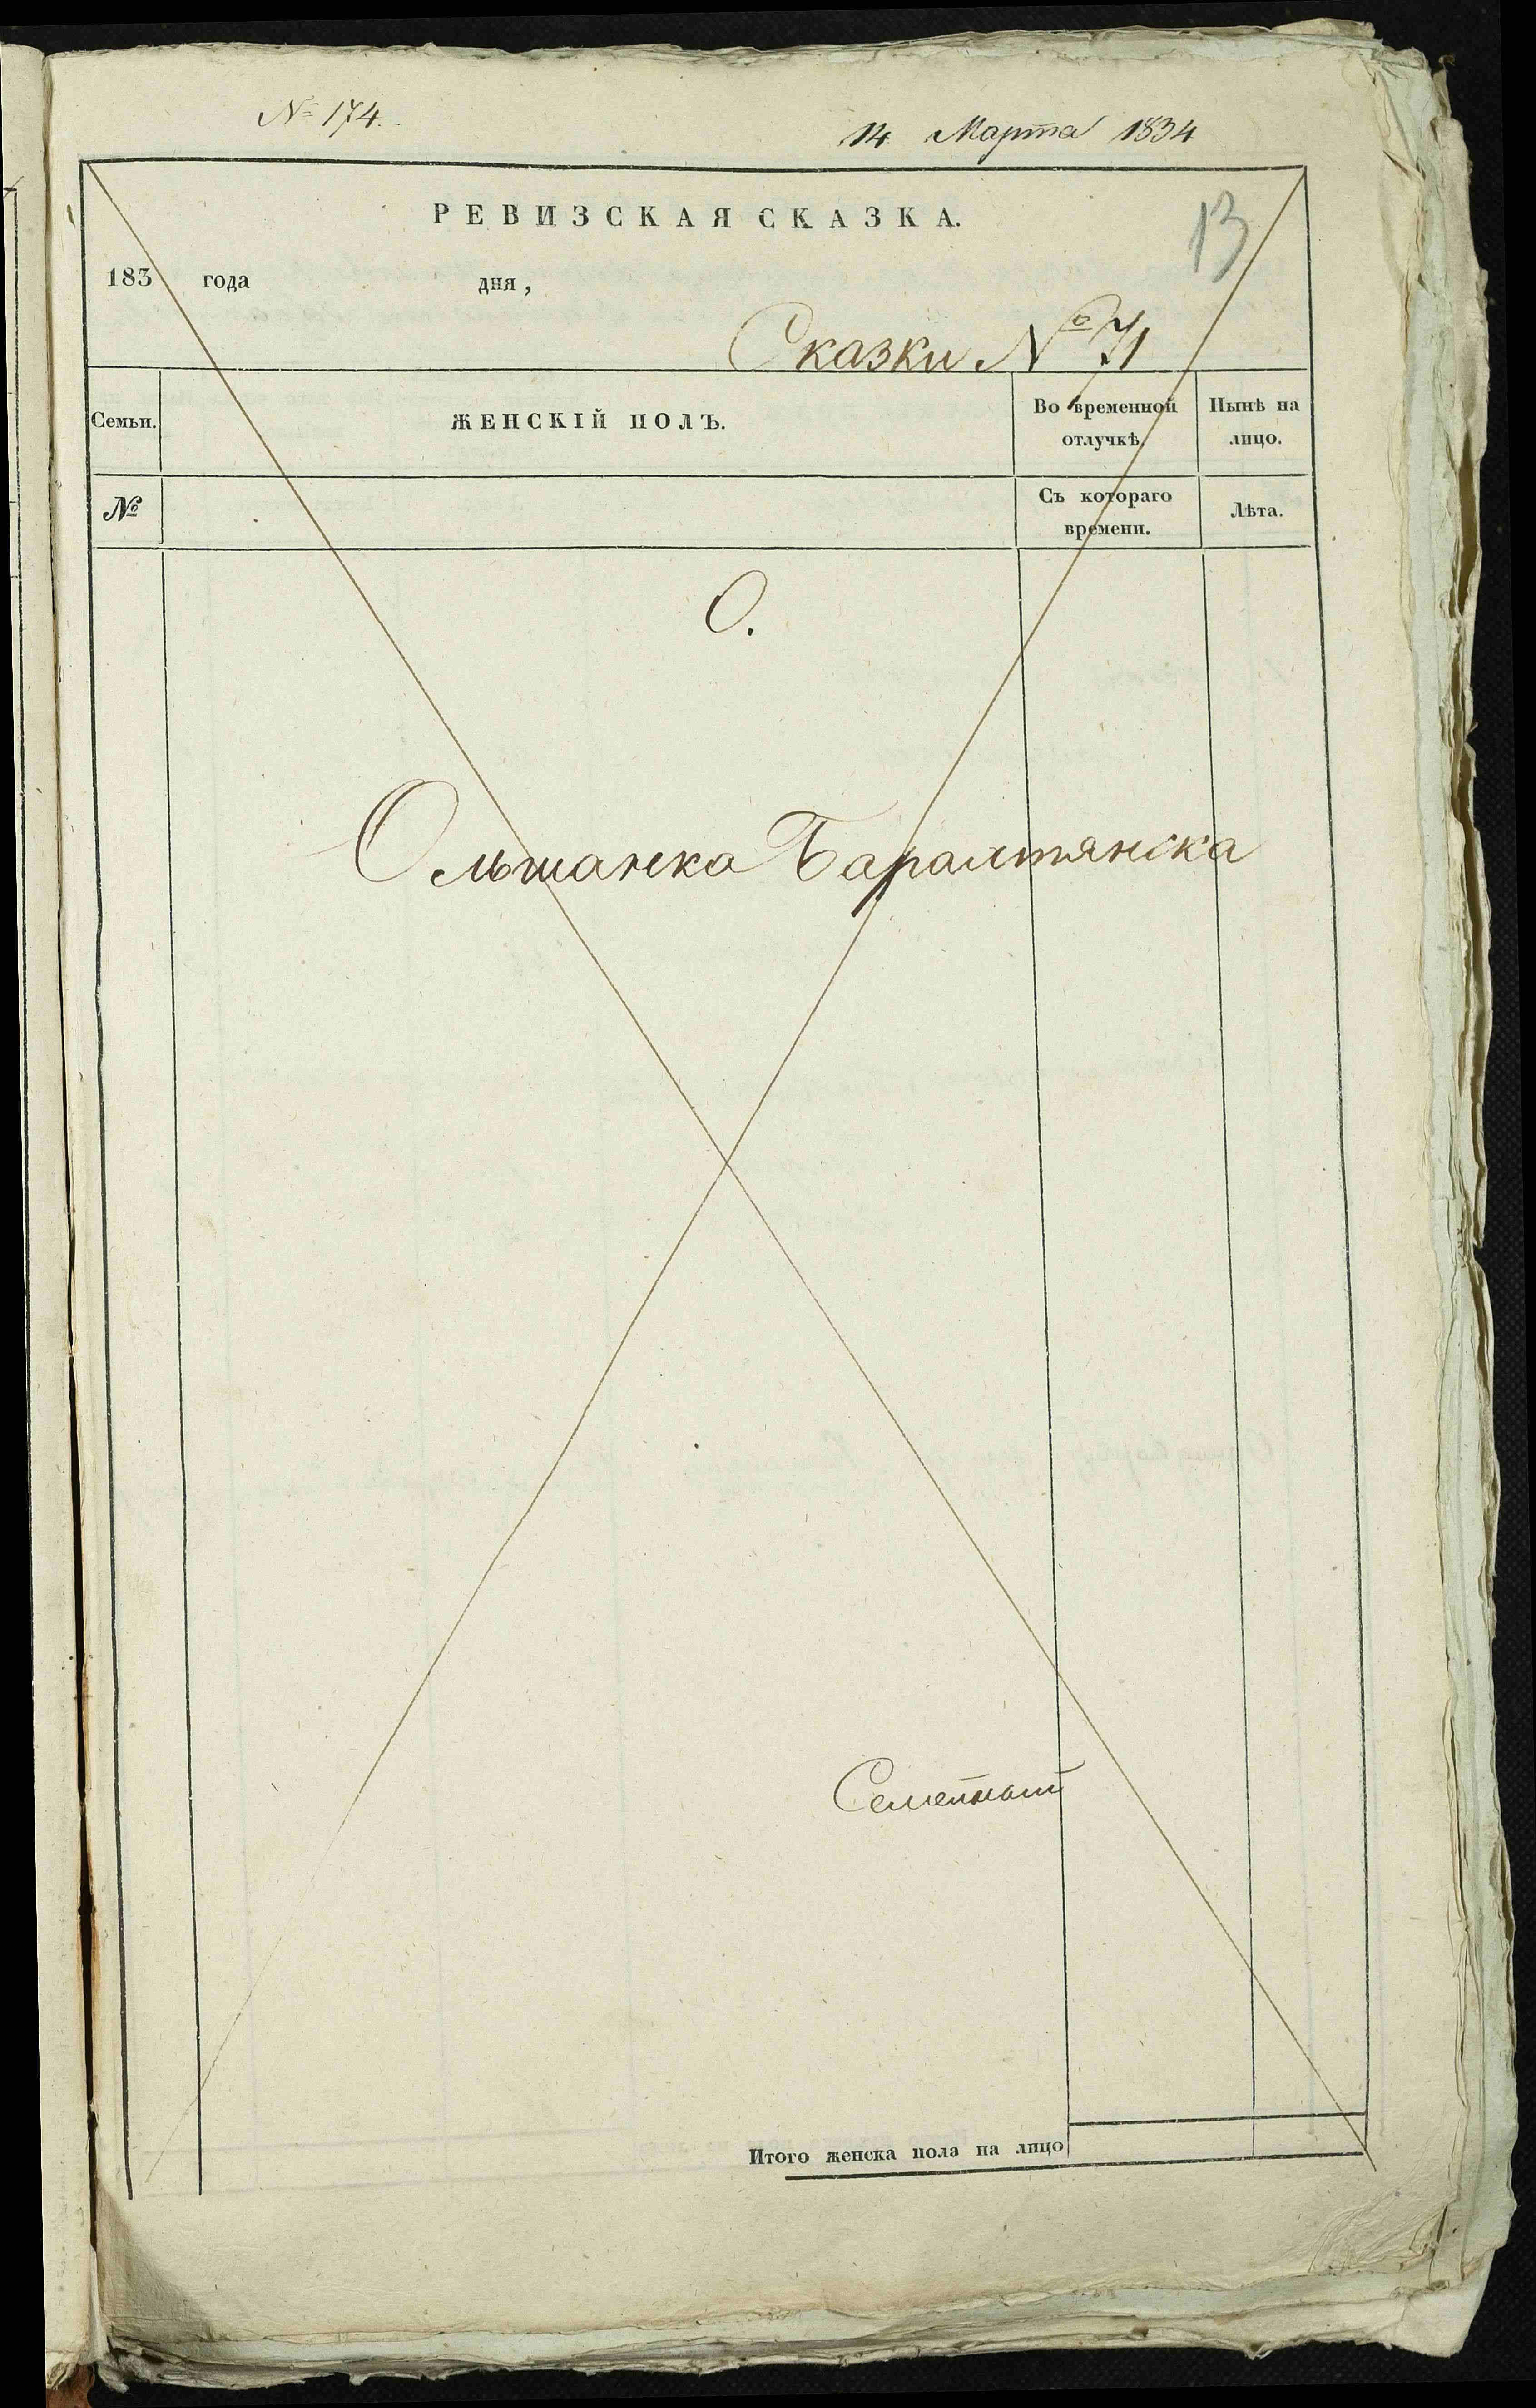 № 174.
14 Марта 1834
РЕВИЗСКАЯ СКАЗКА.
13
183 года дня,
Сказки № 71
Семьи. ЖЕНСКІЙ ПОЛЪ. Во временной отлучкѣ. Нынѣ на лицо.
№ Съ котораго времени. Лѣта.
О.
Ольшанка Баралтянска
Семейный
Итого женска пола на лицо